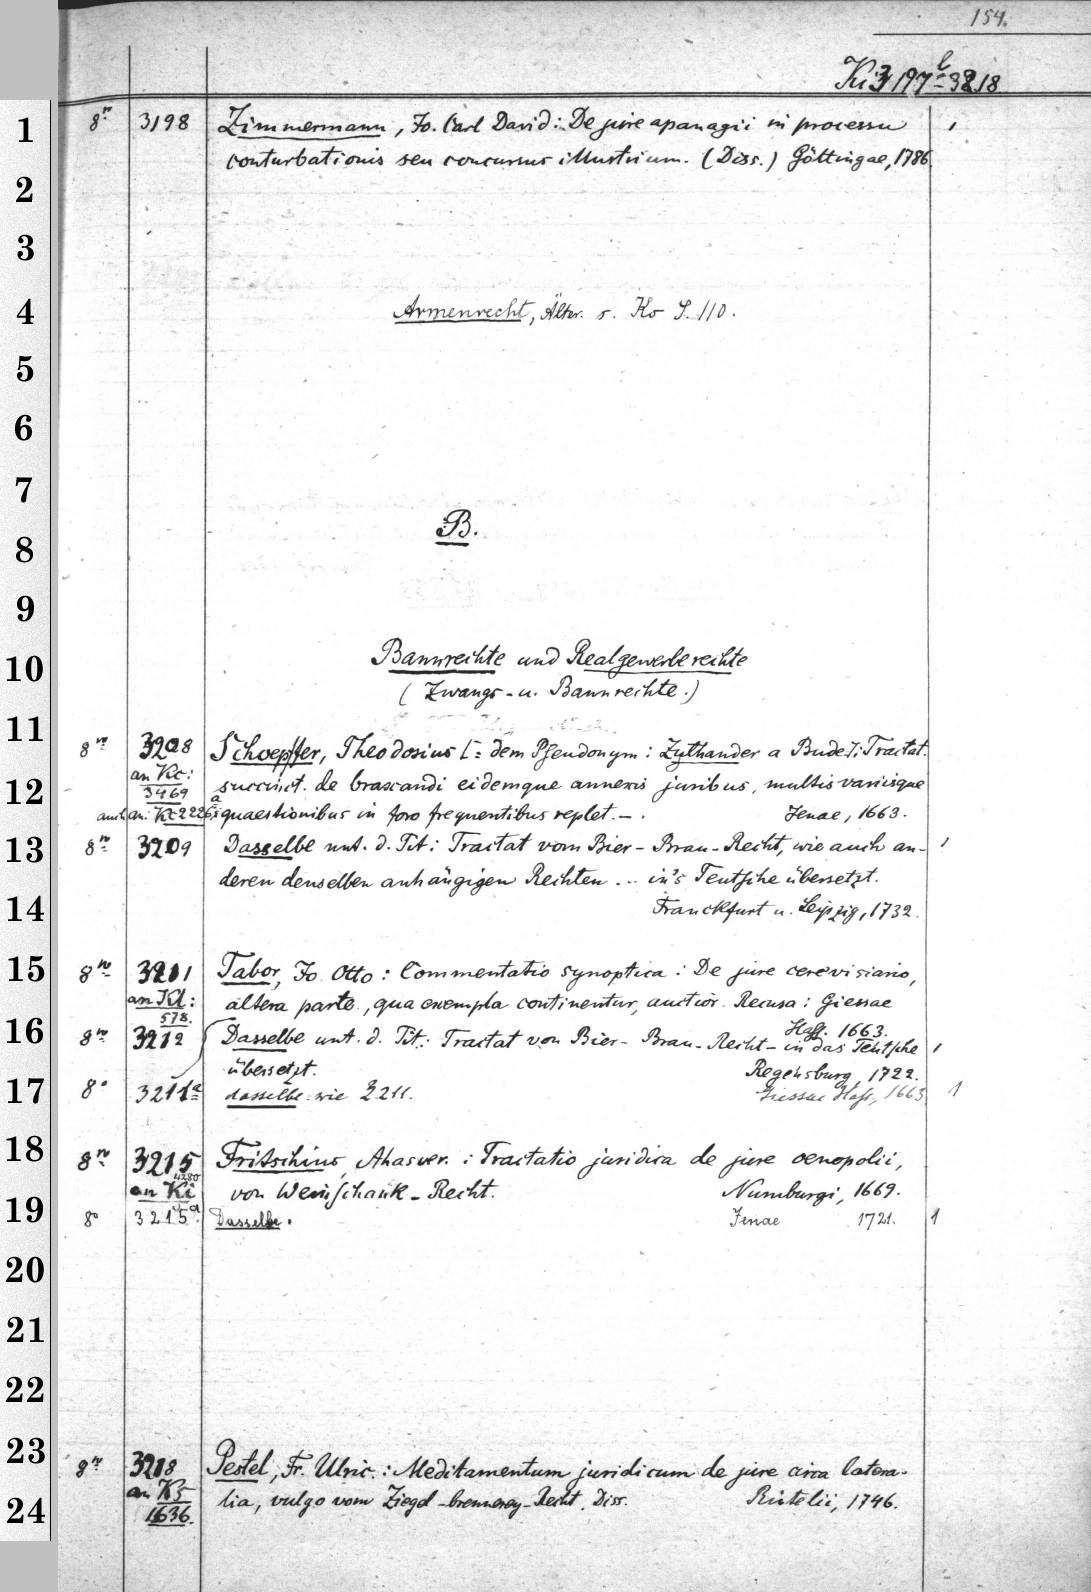 154.
Ki 3197b-3218
1 8º 3198 Zimmermann, Jo. Carl David: De jure apanagii in processu 1
2 conturbationis seu concursus illustrium. (Diss.) Göttingae, 1786.
3
4 Armenrecht, Älter. s. Ko S. 110.
5
6
7
8 B.
9
10 Bannrechte und Realgewerberechte
(Zwangs- u. Bannrechte.)
11 8º 3208 Schoepffer, Theodosius [= dem Pseudonym: Zythander a Bude]: Tractat.
12 an Kc: 3469 succinct. de braxandi eidemque annexis juribus, multis variisque
auch an: Kc 2226a quaestionibus in foro frequentibus replet. - . Jenae, 1663.
13 8º 3209 Dasselbe unt. d. Tit: Tractat vom Bier- Brau- Recht, wie auch an- 1
deren denselben anhängigen Rechten ... in's Teutsche übersetzt.
14 Franckfurt u. Leipzig, 1732.
15 8º 3211 Tabor, Jo. Otto: Commentatio synoptica: De jure cerevisiario,
an Kl: 578. altera parte, qua exempla continentur, auctior. Recusa: Giessae
Hass. 1663.
16 8º 3212 Dasselbe unt. d. Tit.: Tractat von Bier- Brau- Recht- in das Teutsche 1
übersetzt. Regensburg, 1722.
17 8º 3211a dasselbe wie 3211. Giessae Hass, 1663 1
18 8º 3215 Fritschius, Ahasver.: Tractatio juridica de jure oenopolii,
an Ki 4280 von Weinschank-Recht. Numburgi, 1669.
19 8º 3215a. Dasselbe. Jenae 1721. 1
20
21
22
23 8º 3218 Pestel, Fr. Ulric.: Meditamentum juridicum de jure circa latera-
24 an K5 1636. lia, vulgo vom Ziegel-brennerey-Recht. Diss. Rintelii, 1746.